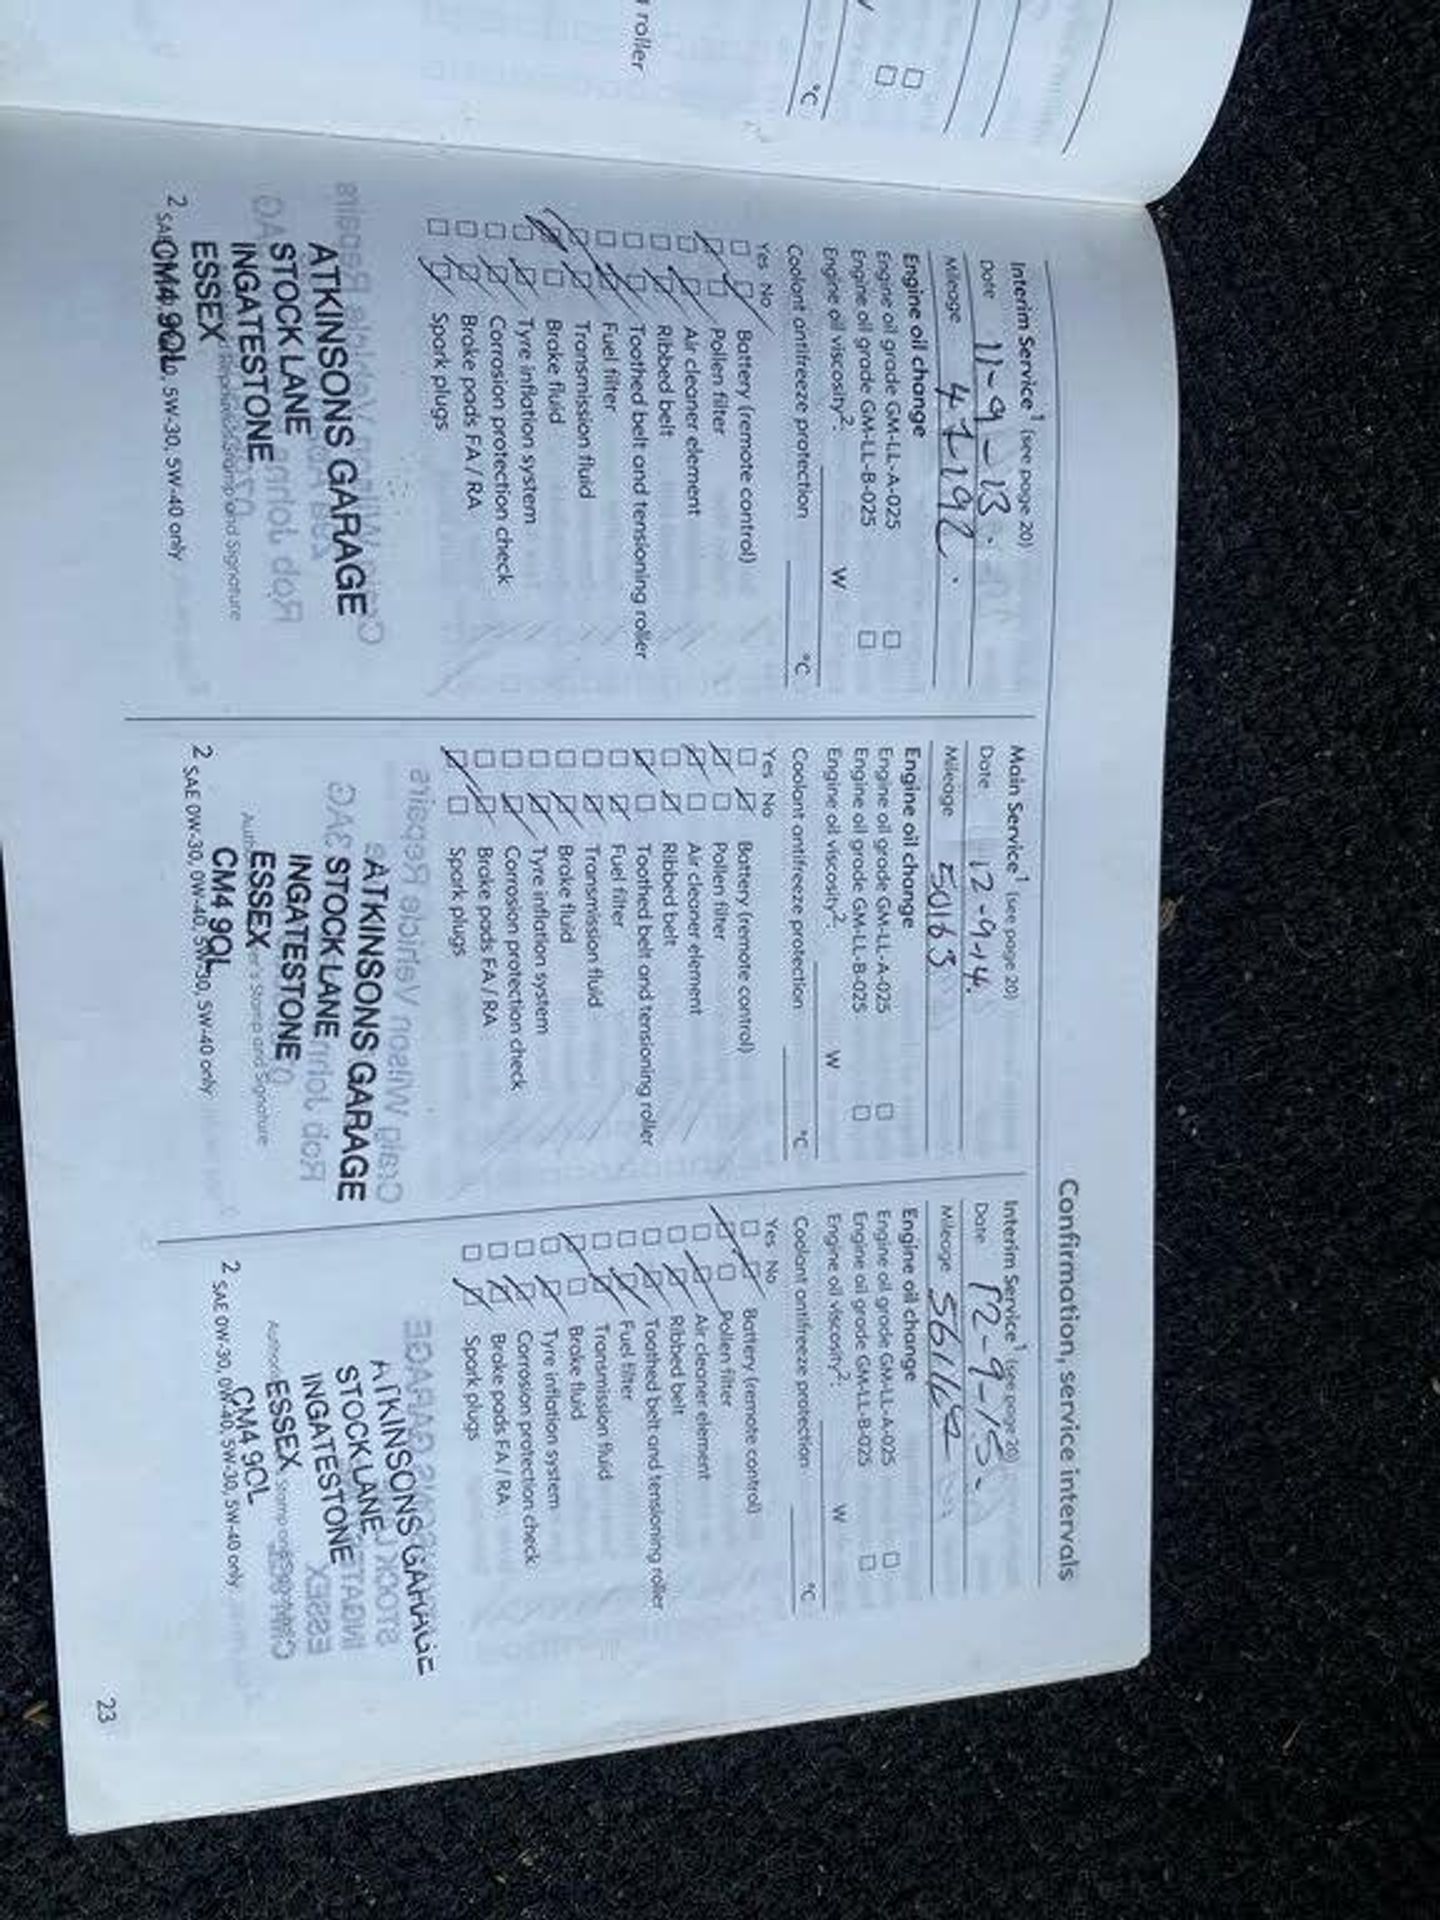 roller
°C
Confirmation, service intervals
Interim Service¹ (see page 20)
Date 11-9-13.
Mileage
Engine oil change
Engine oil grade GM-LL-A-025
Engine oil grade GM-LL-B-025
Engine oil viscosity²: W
Coolant antifreeze protection °C
Yes No
Battery (remote control)
Pollen filter
Air cleaner element
Ribbed belt
Toothed belt and tensioning roller
Fuel filter
Transmission fluid
Brake fluid
Tyre inflation system
Corrosion protection check
Brake pads FA / RA
Spark plugs
ATKINSONS GARAGE
STOCK LANE
INGATESTONE
Stamp and Signature
ESSEX
CM4 9QL
2 SAE 5W-30, 5W-40 only
Main Service¹ (see page 20)
Date 12-9-14.
Mileage 50163
Engine oil change
Engine oil grade GM-LL-A-025
Engine oil grade GM-LL-B-025
Engine oil viscosity²: W
Coolant antifreeze protection °C
Yes No
Battery (remote control)
Pollen filter
Air cleaner element
Ribbed belt
Toothed belt and tensioning roller
Fuel filter
Transmission fluid
Brake fluid
Tyre inflation system
Corrosion protection check
Brake pads FA / RA
Spark plugs
ATKINSONS GARAGE
STOCK LANE
INGATESTONE
Stamp and Signature
ESSEX
CM4 9QL
2 SAE 0W-30, 0W-40, 5W-30, 5W-40 only
Interim Service¹ (see page 20)
Date 12-9-15.
Mileage
Engine oil change
Engine oil grade GM-LL-A-025
Engine oil grade GM-LL-B-025
Engine oil viscosity²: W
Coolant antifreeze protection °C
Yes No
Battery (remote control)
Pollen filter
Air cleaner element
Ribbed belt
Toothed belt and tensioning roller
Fuel filter
Transmission fluid
Brake fluid
Tyre inflation system
Corrosion protection check
Brake pads FA / RA
Spark plugs
ATKINSONS GARAGE
STOCK LANE
INGATESTONE
ESSEX
CM4 9QL
2 SAE 0W-30, 0W-40, 5W-30, 5W-40 only
23